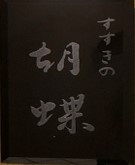 すすきの
胡蝶